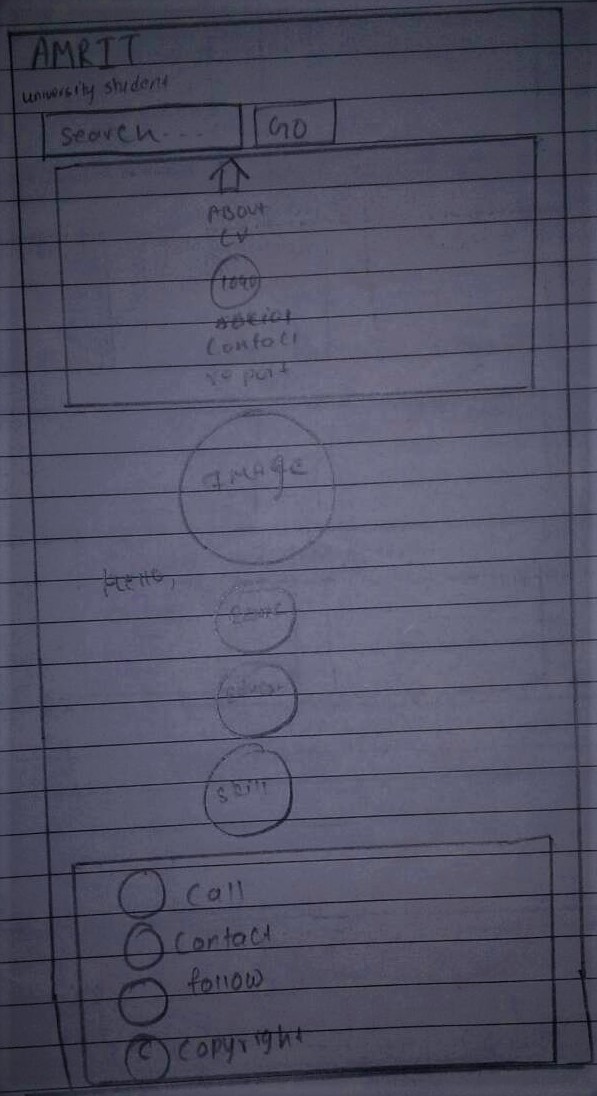 AMRIT
university student
Search... GO
ABOUT
CV
logo
Contact
report
IMAGE
Hello,
skill
Call
Contact
follow
C Copyright